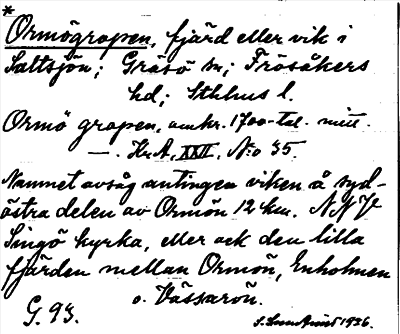 *
Ormögropen, fjärd eller vik i
Saltsjön; Gräsö sn; Frösåkers
hd; Sthlms l.
Ormö gropen, omkr. 1700-tal. mitt.
—. Kr. A, XXII, No 35.
Namnet avsåg antingen viken å syd-
östra delen av Ormön 12 km. NNV
Singö kyrka, eller ock den lilla
fjärden mellan Ormön, Enholmen
o. Vässarön.
G. 93.
1936.